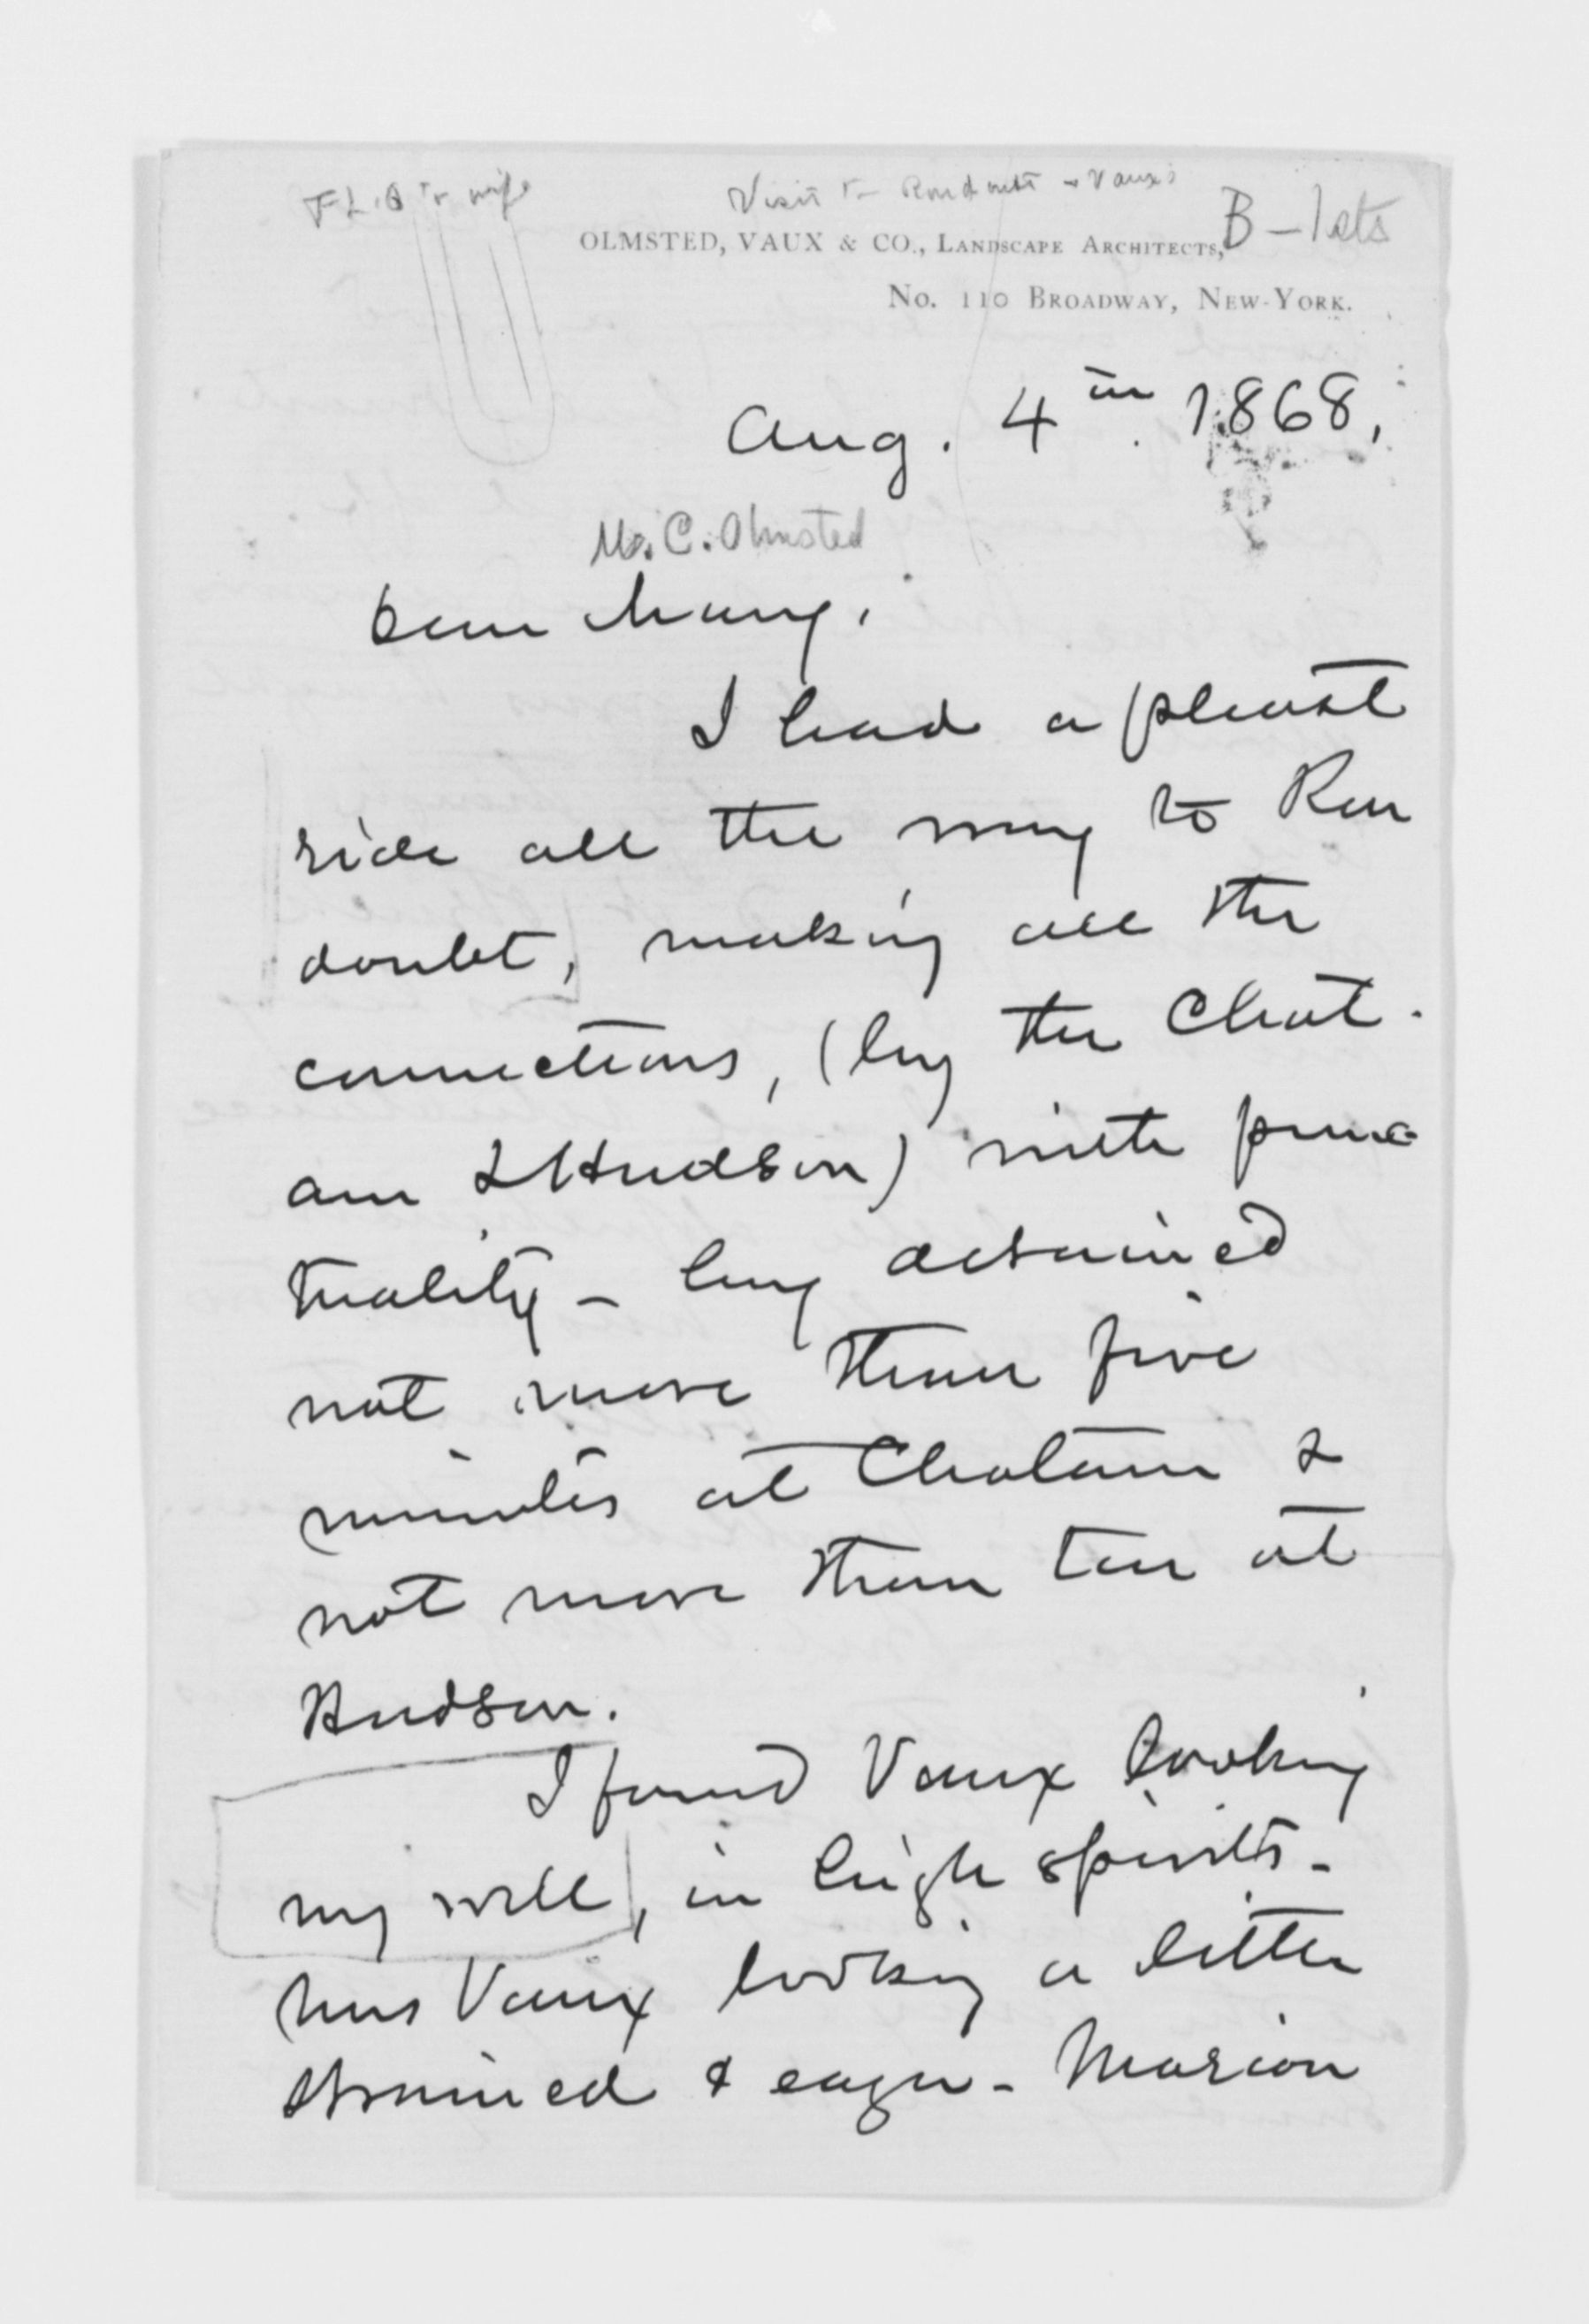 F.L.O to wife
Visit to Rondout & Vaux's
B – lets
OLMSTED, VAUX & CO., LANDSCAPE ARCHITECTS,
No. 110 BROADWAY, NEW-YORK.
Aug. 4th. 1868,
M. C. Olmsted
Dear Mary,
I had a pleasat
ride all the way to Ron
doubt, making all the
connections, (by the Chat-
am & Hudson) with punc-
tuality – being detained
not more than five
minutes at Chatam &
not more than ten at
Hudson.
I found Vaux looking
very well, in high spirits –
Mrs Vaux looking a little
strained & eager – Marion